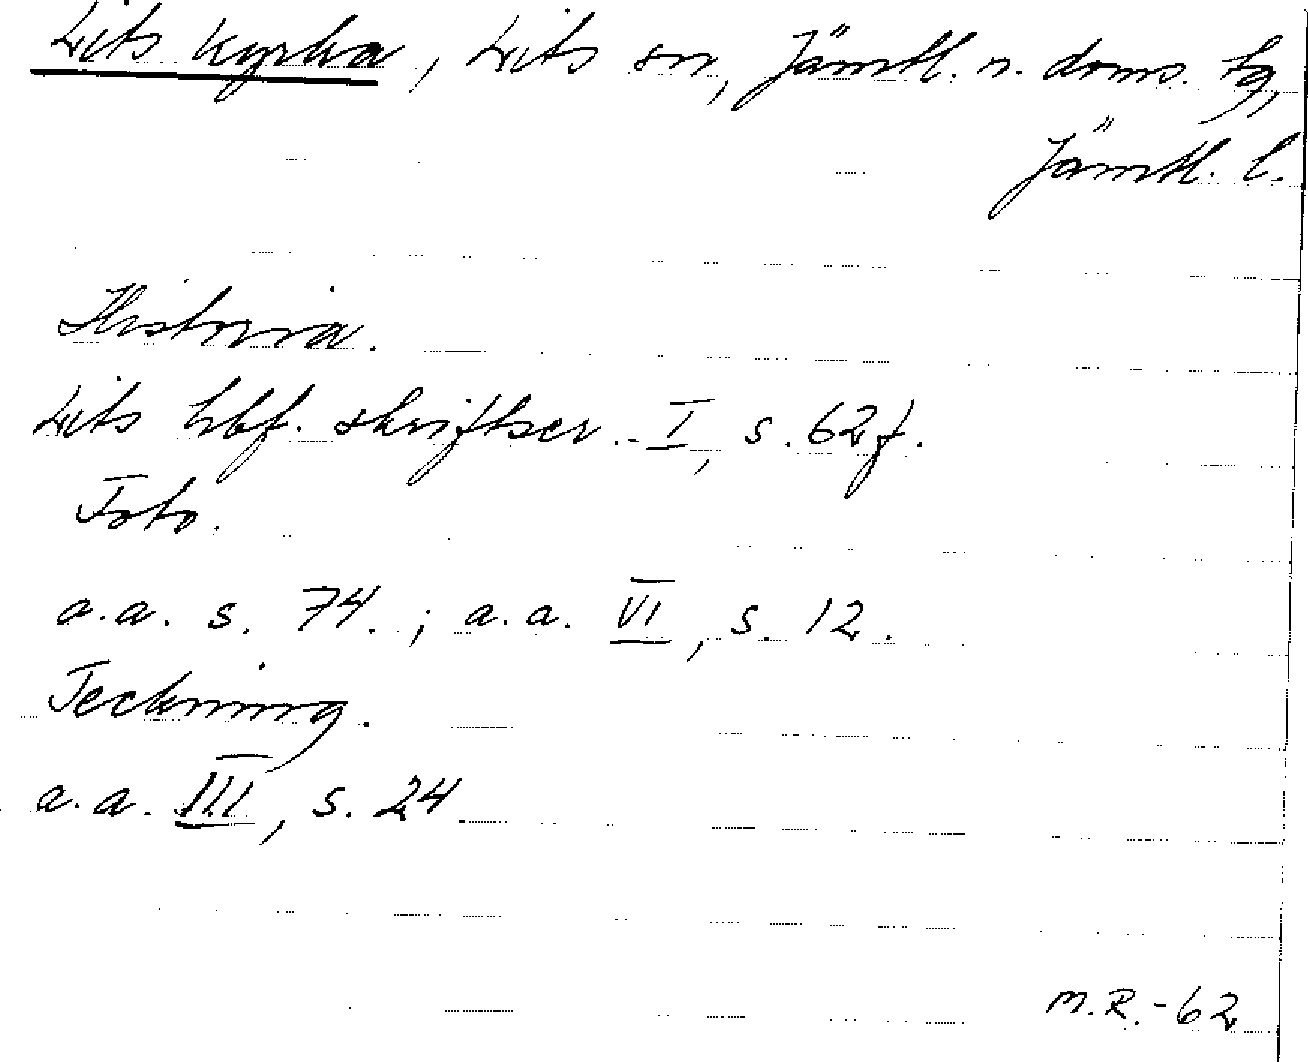 Lits kyrka, Lits sn, Jämtl. n. doms. tg,
Jämtl. l.
Historia.
Lits hbf. skriftser. I, s. 62 f.
Foto.
a.a. s. 74. ; a.a. VI, s. 12.
Teckning.
a.a. III, s. 24
M.R.-62